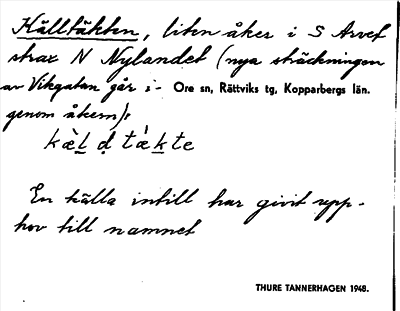 Källtäkten, liten åker i S Arvet
strax N Nylandet (nya sträckningen
av Vikgatan går i-
Ore sn, Rättviks tg, Kopparbergs län.
genom åkern):
kæ̀l̠ ḍ tæ̀k̠te
En källa intill har givit upp-
hov till namnet
THURE TANNERHAGEN 1948.